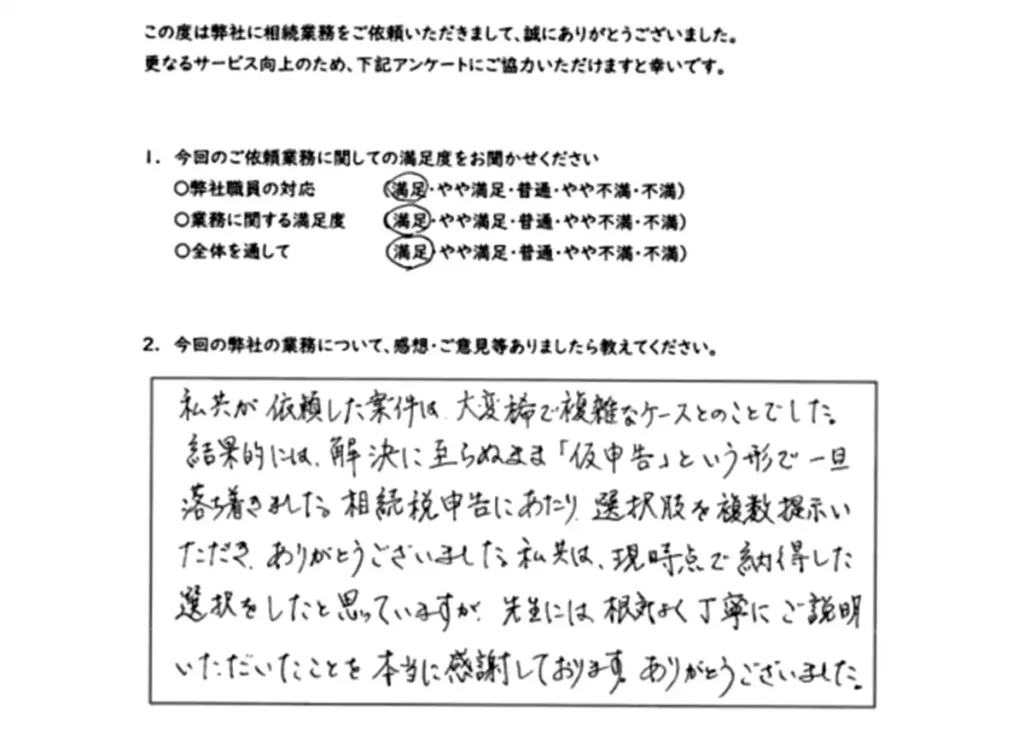 この度は弊社に相続業務をご依頼いただきまして、誠にありがとうございました。
更なるサービス向上のため、下記アンケートにご協力いただけますと幸いです。
1. 今回のご依頼業務に関しての満足度をお聞かせください
○弊社職員の対応 (満足・やや満足・普通・やや不満・不満)
○業務に関する満足度 (満足・やや満足・普通・やや不満・不満)
○全体を通して (満足・やや満足・普通・やや不満・不満)
2. 今回の弊社の業務について、感想・ご意見等ありましたら教えてください。
私共が依頼した案件は、大変稀で複雑なケースとのことでした。
結果的には、解決に至らぬまま「仮申告」という形で一旦
落ち着きました。相続税申告にあたり、選択肢を複数提示い
ただき、ありがとうございました。私共は、現時点で納得した
選択をしたと思っていますが、先生には根気よく丁寧にご説明
いただいたことを本当に感謝しております。ありがとうございました。